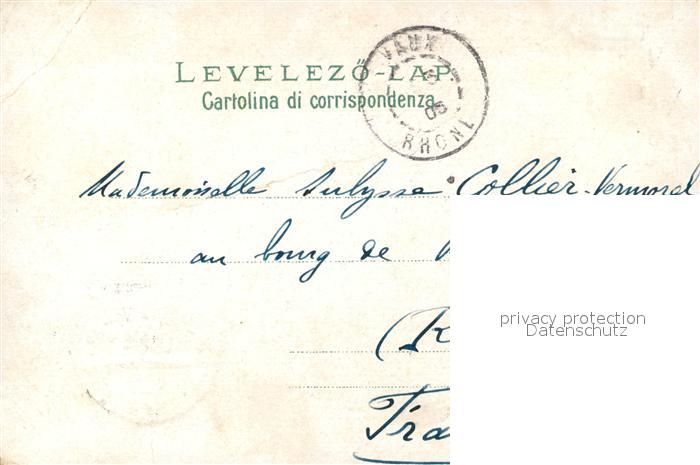 LEVELEZŐ-LAP
Cartolina di corrispondenza
VAUX
RHONE
Mademoiselle Collier-Vermorel
au bourg de
(R
Fra
privacy protection
Datenschutz